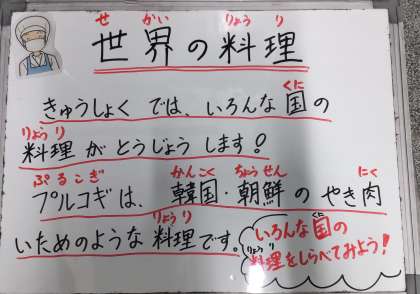 せ かい りょう り
世界の料理
きゅうしょく では、いろんな 国の
くに
りょう り
料理 が とうじょう します!
ぷるこぎ かんこく ちょうせん にく
プルコギは、韓国・朝鮮の やき肉
りょうり
いためのような 料理です。
くに
いろんな国の
りょうり
料理をしらべてみよう!